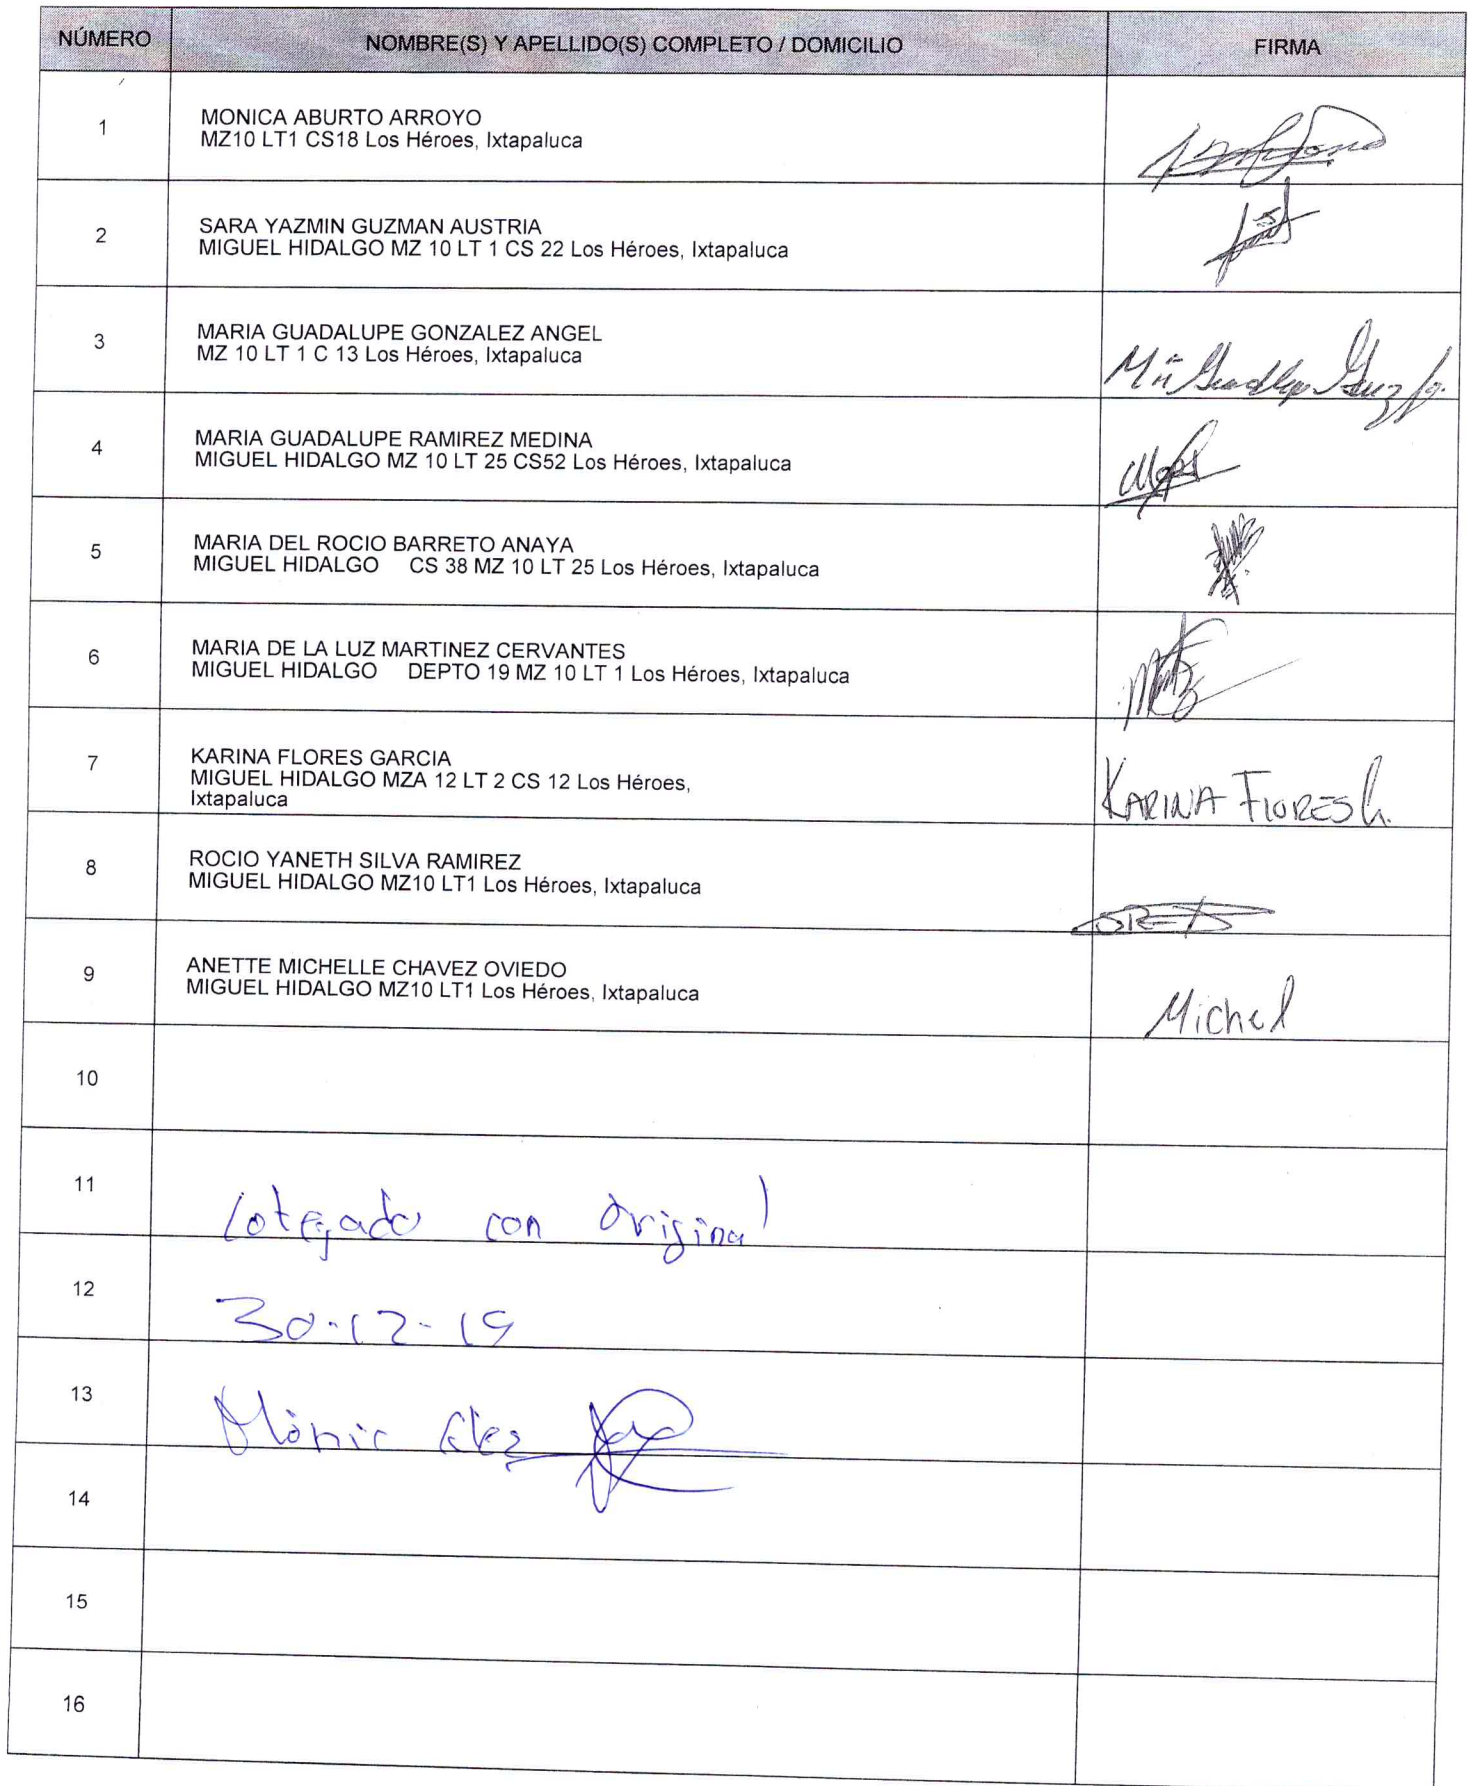 NÚMERO NOMBRE(S) Y APELLIDO(S) COMPLETO / DOMICILIO FIRMA
1 MONICA ABURTO ARROYO
MZ10 LT1 CS18 Los Héroes, Ixtapaluca
2 SARA YAZMIN GUZMAN AUSTRIA
MIGUEL HIDALGO MZ 10 LT 1 CS 22 Los Héroes, Ixtapaluca
3 MARIA GUADALUPE GONZALEZ ANGEL
MZ 10 LT 1 C 13 Los Héroes, Ixtapaluca
4 MARIA GUADALUPE RAMIREZ MEDINA
MIGUEL HIDALGO MZ 10 LT 25 CS52 Los Héroes, Ixtapaluca
5 MARIA DEL ROCIO BARRETO ANAYA
MIGUEL HIDALGO CS 38 MZ 10 LT 25 Los Héroes, Ixtapaluca
6 MARIA DE LA LUZ MARTINEZ CERVANTES
MIGUEL HIDALGO DEPTO 19 MZ 10 LT 1 Los Héroes, Ixtapaluca
7 KARINA FLORES GARCIA
MIGUEL HIDALGO MZA 12 LT 2 CS 12 Los Héroes,
Ixtapaluca
KARINA FLORES G.
8 ROCIO YANETH SILVA RAMIREZ
MIGUEL HIDALGO MZ10 LT1 Los Héroes, Ixtapaluca
9 ANETTE MICHELLE CHAVEZ OVIEDO
MIGUEL HIDALGO MZ10 LT1 Los Héroes, Ixtapaluca
Michel
10
11 Cotejado con original
12 30-12-19
13
14
15
16